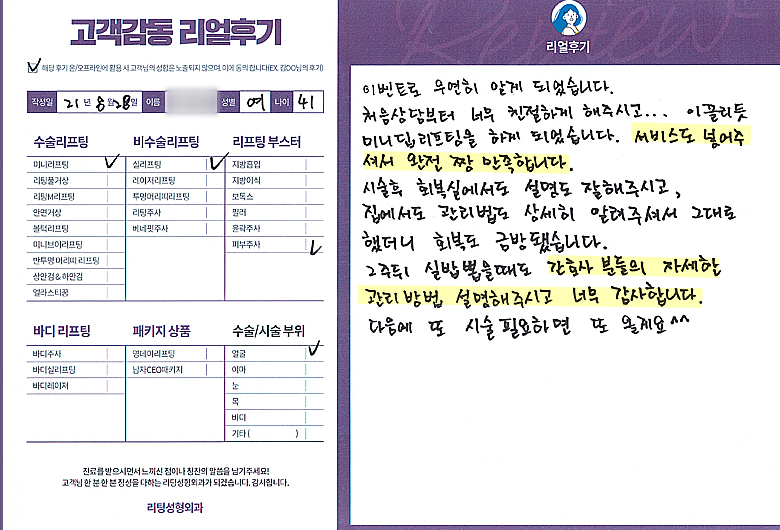 고객감동 리얼후기
해당 후기 온/오프라인에 활용 시 고객님의 성함은 노출되지 않으며, 이에 동의 합니다(EX. 김OO님의 후기)
작성일 21년 8월 28일 이름 성별 여 나이 41
수술리프팅 비수술리프팅 리프팅 부스터
미니리프팅 실리프팅 지방흡입
리팅풀거상 레이저리프팅 지방이식
리팅M리프팅 투명머리띠리프팅 보톡스
안면거상 리팅주사 필러
볼턱리프팅 버네핏주사 윤곽주사
미니브이리프팅 피부주사
반투명 머리띠 리프팅
상안검 & 하안검
얼라스티꿈
바디 리프팅 패키지 상품 수술/시술 부위
바디주사 영데이리프팅 얼굴
바디실리프팅 남자CEO패키지 이마
바디레이저 눈
목
바디
기타 ( )
진료를 받으시면서 느끼신 점이나 칭찬의 말씀을 남겨주세요!
고객님 한 분 한 분 정성을 다하는 리팅성형외과가 되겠습니다. 감사합니다.
리팅성형외과
Review
리얼후기
이벤트로 우연히 알게 되었습니다.
처음상담부터 너무 친절하게 해주시고... 이끌리듯
미니딥리프팅을 하게 되었습니다. 서비스도 넣어주
셔서 완전 짱 만족합니다.
시술후 회복실에서도 설명도 잘해주시고,
집에서도 관리법도 상세히 알려주셔서 그대로
했더니 회복도 금방됐습니다.
2주뒤 실밥뽑을때도 간호사 분들의 자세한
관리방법, 설명해주시고 너무 감사합니다.
다음에 또 시술필요하면 또 올게요^^